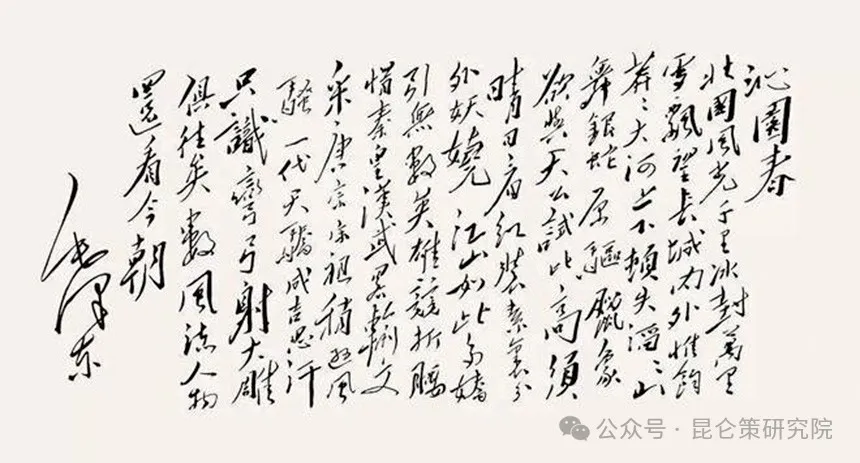 沁園春
北國風光千里冰封萬里
雪飄望長城内外惟餘
莽々大河上下頓失滔々山
舞銀蛇原驅臘象
欲與天公試比高須
晴日看红裝素裹分
外妖嬈 江山如此多嬌
引無數英雄競折腰
惜秦皇漢武略輸文
采唐宗宋祖稍遜風
騷一代天驕成吉思汗
只識彎弓射大雕
俱往矣數風流人物
還看今朝
毛澤东
公众号·昆仑策研究院